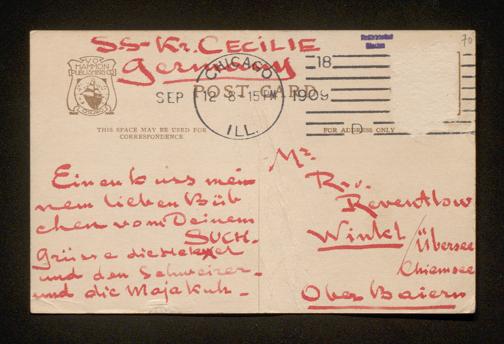 SS-Kr. CECILIE
Germany
V.O.
HAMMON
PUBLISHING CO
CHICAGO
POST CARD
CHICAGO
SEP 12 8-15PM 1909
ILL.
18
D
70
THIS SPACE MAY BE USED FOR
CORRESPONDENCE
FOR ADDRESS ONLY
Einen Kuss mein
nem lieben Büb
chen vom Deinem
SUCH.
Grüsse die
und den Schweizer-
und die Majakuh-
Mr.
R. v.
Reventlow
Winkl / Übersee
Chiemsee
Ober Baiern